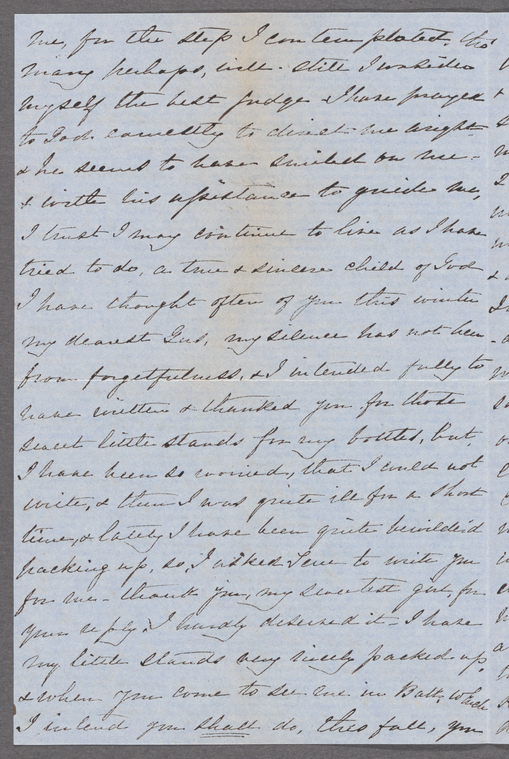 me, for the step I contemplated. tho'
many perhaps, will - still I consider
myself the best judge I have prayed
to God earnestly to direct me aright
& he seems to have smiled on me -
& with his assistance to guide me,
I trust I may continue to live as I have
tried to do, a true & sincere child of God
I have thought often of you this winter
my dearest Gus, my silence has not been
from forgetfulness, & I intended fully to
have written & thanked you for those
sweet little stands for my bottles, but,
I have been so worried, that I could not
write, & then I was quite ill for a short
time, & lately I have been quite bewilder'd
packing up, so, I asked to write you
for me - thank you, my sweetest girl, for
your reply, I hardly deserved it - I have
my little stands very nicely packed up,
& when you come to see me in Balt, which
I intend you shall do, this fall, you